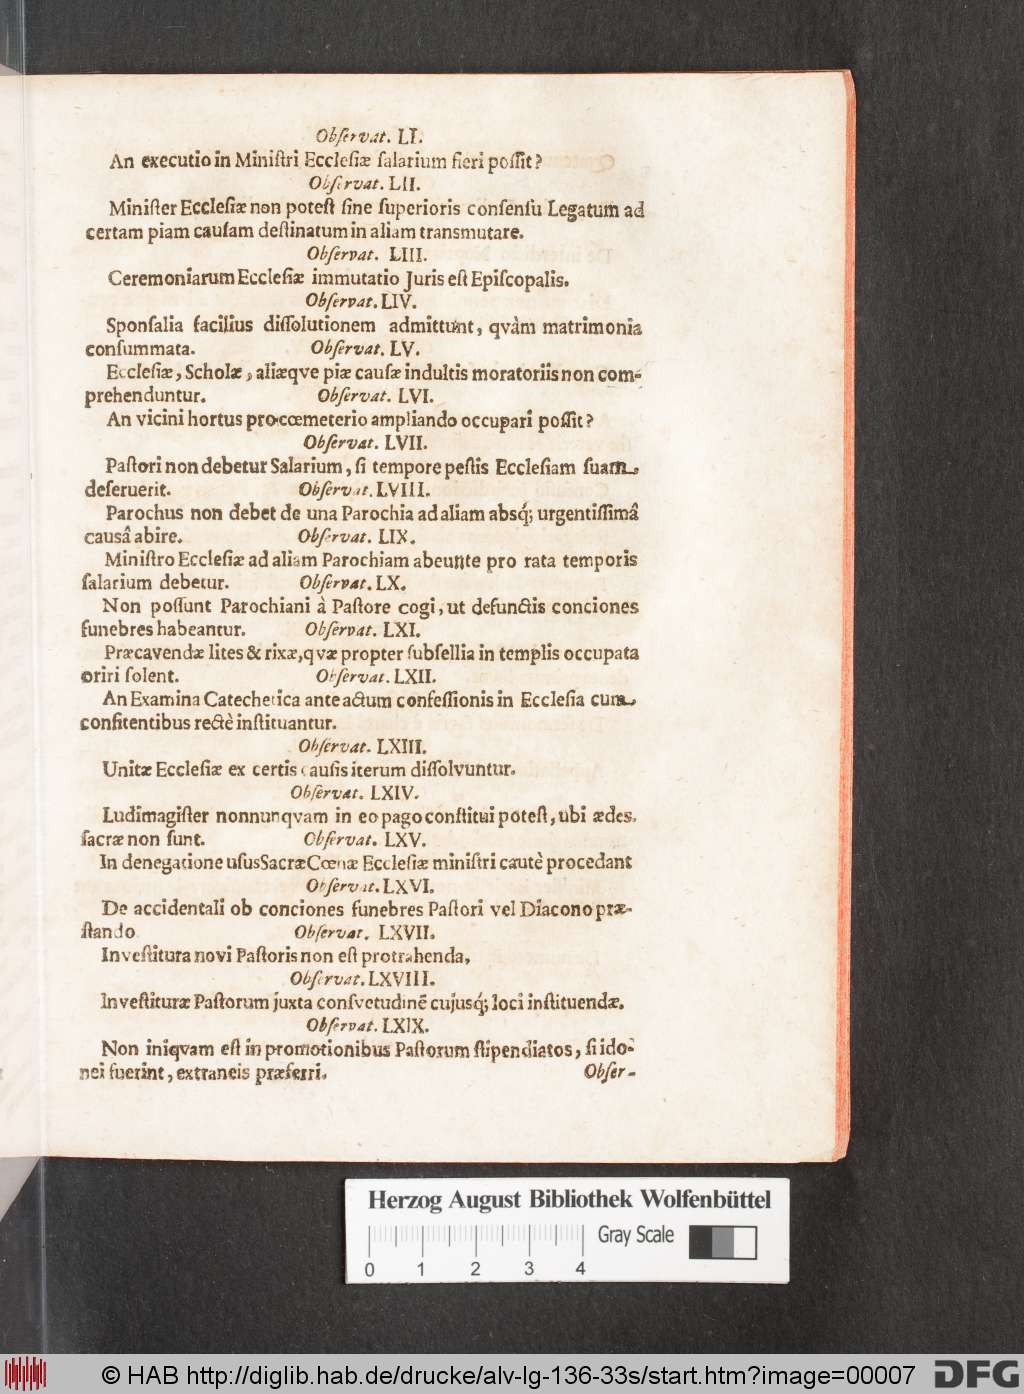 Obſervat. LI.
An executio in Miniſtri Eccleſiæ ſalarium fieri poſſit?
Obſervat. LII.
Miniſter Eccleſiæ non poteſt ſine ſuperioris conſenſu Legatum ad
certam piam cauſam deſtinatum in aliam transmutare.
Obſervat. LIII.
Ceremoniarum Eccleſiæ immutatio Juris eſt Epiſcopalis.
Obſervat. LIV.
Sponſalia facilius diſſolutionem admittunt, qvàm matrimonia
conſummata. Obſervat. LV.
Eccleſiæ, Scholæ, aliæqve piæ cauſæ indultis moratoriis non com-
prehenduntur. Obſervat. LVI.
An vicini hortus pro cœmeterio ampliando occupari poſſit?
Obſervat. LVII.
Paſtori non debetur Salarium, ſi tempore peſtis Eccleſiam ſuam
deſeruerit. Obſervat. LVIII.
Parochus non debet de una Parochia ad aliam absq́; urgentiſſimâ
causâ abire. Obſervat. LIX.
Miniſtro Eccleſiæ ad aliam Parochiam abeunte pro rata temporis
ſalarium debetur. Obſervat. LX.
Non poſſunt Parochiani à Paſtore cogi, ut defunctis conciones
funebres habeantur. Obſervat. LXI.
Præcavendæ lites & rixæ, qvæ propter ſubſellia in templis occupata
oriri ſolent. Obſervat. LXII.
An Examina Catechetica ante actum confeſſionis in Eccleſia cum
confitentibus rectè inſtituantur.
Obſervat. LXIII.
Unitæ Eccleſiæ ex certis cauſis iterum diſſolvuntur.
Obſervat. LXIV.
Ludimagiſter nonnunqvam in eo pago conſtitui poteſt, ubi ædes
ſacræ non ſunt. Obſervat. LXV.
In denegatione uſus Sacræ Cœnæ Eccleſiæ miniſtri cautè procedant
Obſervat. LXVI.
De accidentali ob conciones funebres Paſtori vel Diacono præ-
ſtando Obſervat. LXVII.
Inveſtitura novi Paſtoris non eſt protrahenda,
Obſervat. LXVIII.
Inveſtituræ Paſtorum juxta conſvetudinẽ cujusq́; loci inſtituendæ.
Obſervat. LXIX.
Non iniqvam eſt in promotionibus Paſtorum ſtipendiatos, ſi ido-
nei fuerint, extraneis præferri. Obſer-
Herzog August Bibliothek Wolfenbüttel
Gray Scale
0 1 2 3 4
© HAB http://diglib.hab.de/drucke/alv-lg-136-33s/start.htm?image=00007
DFG